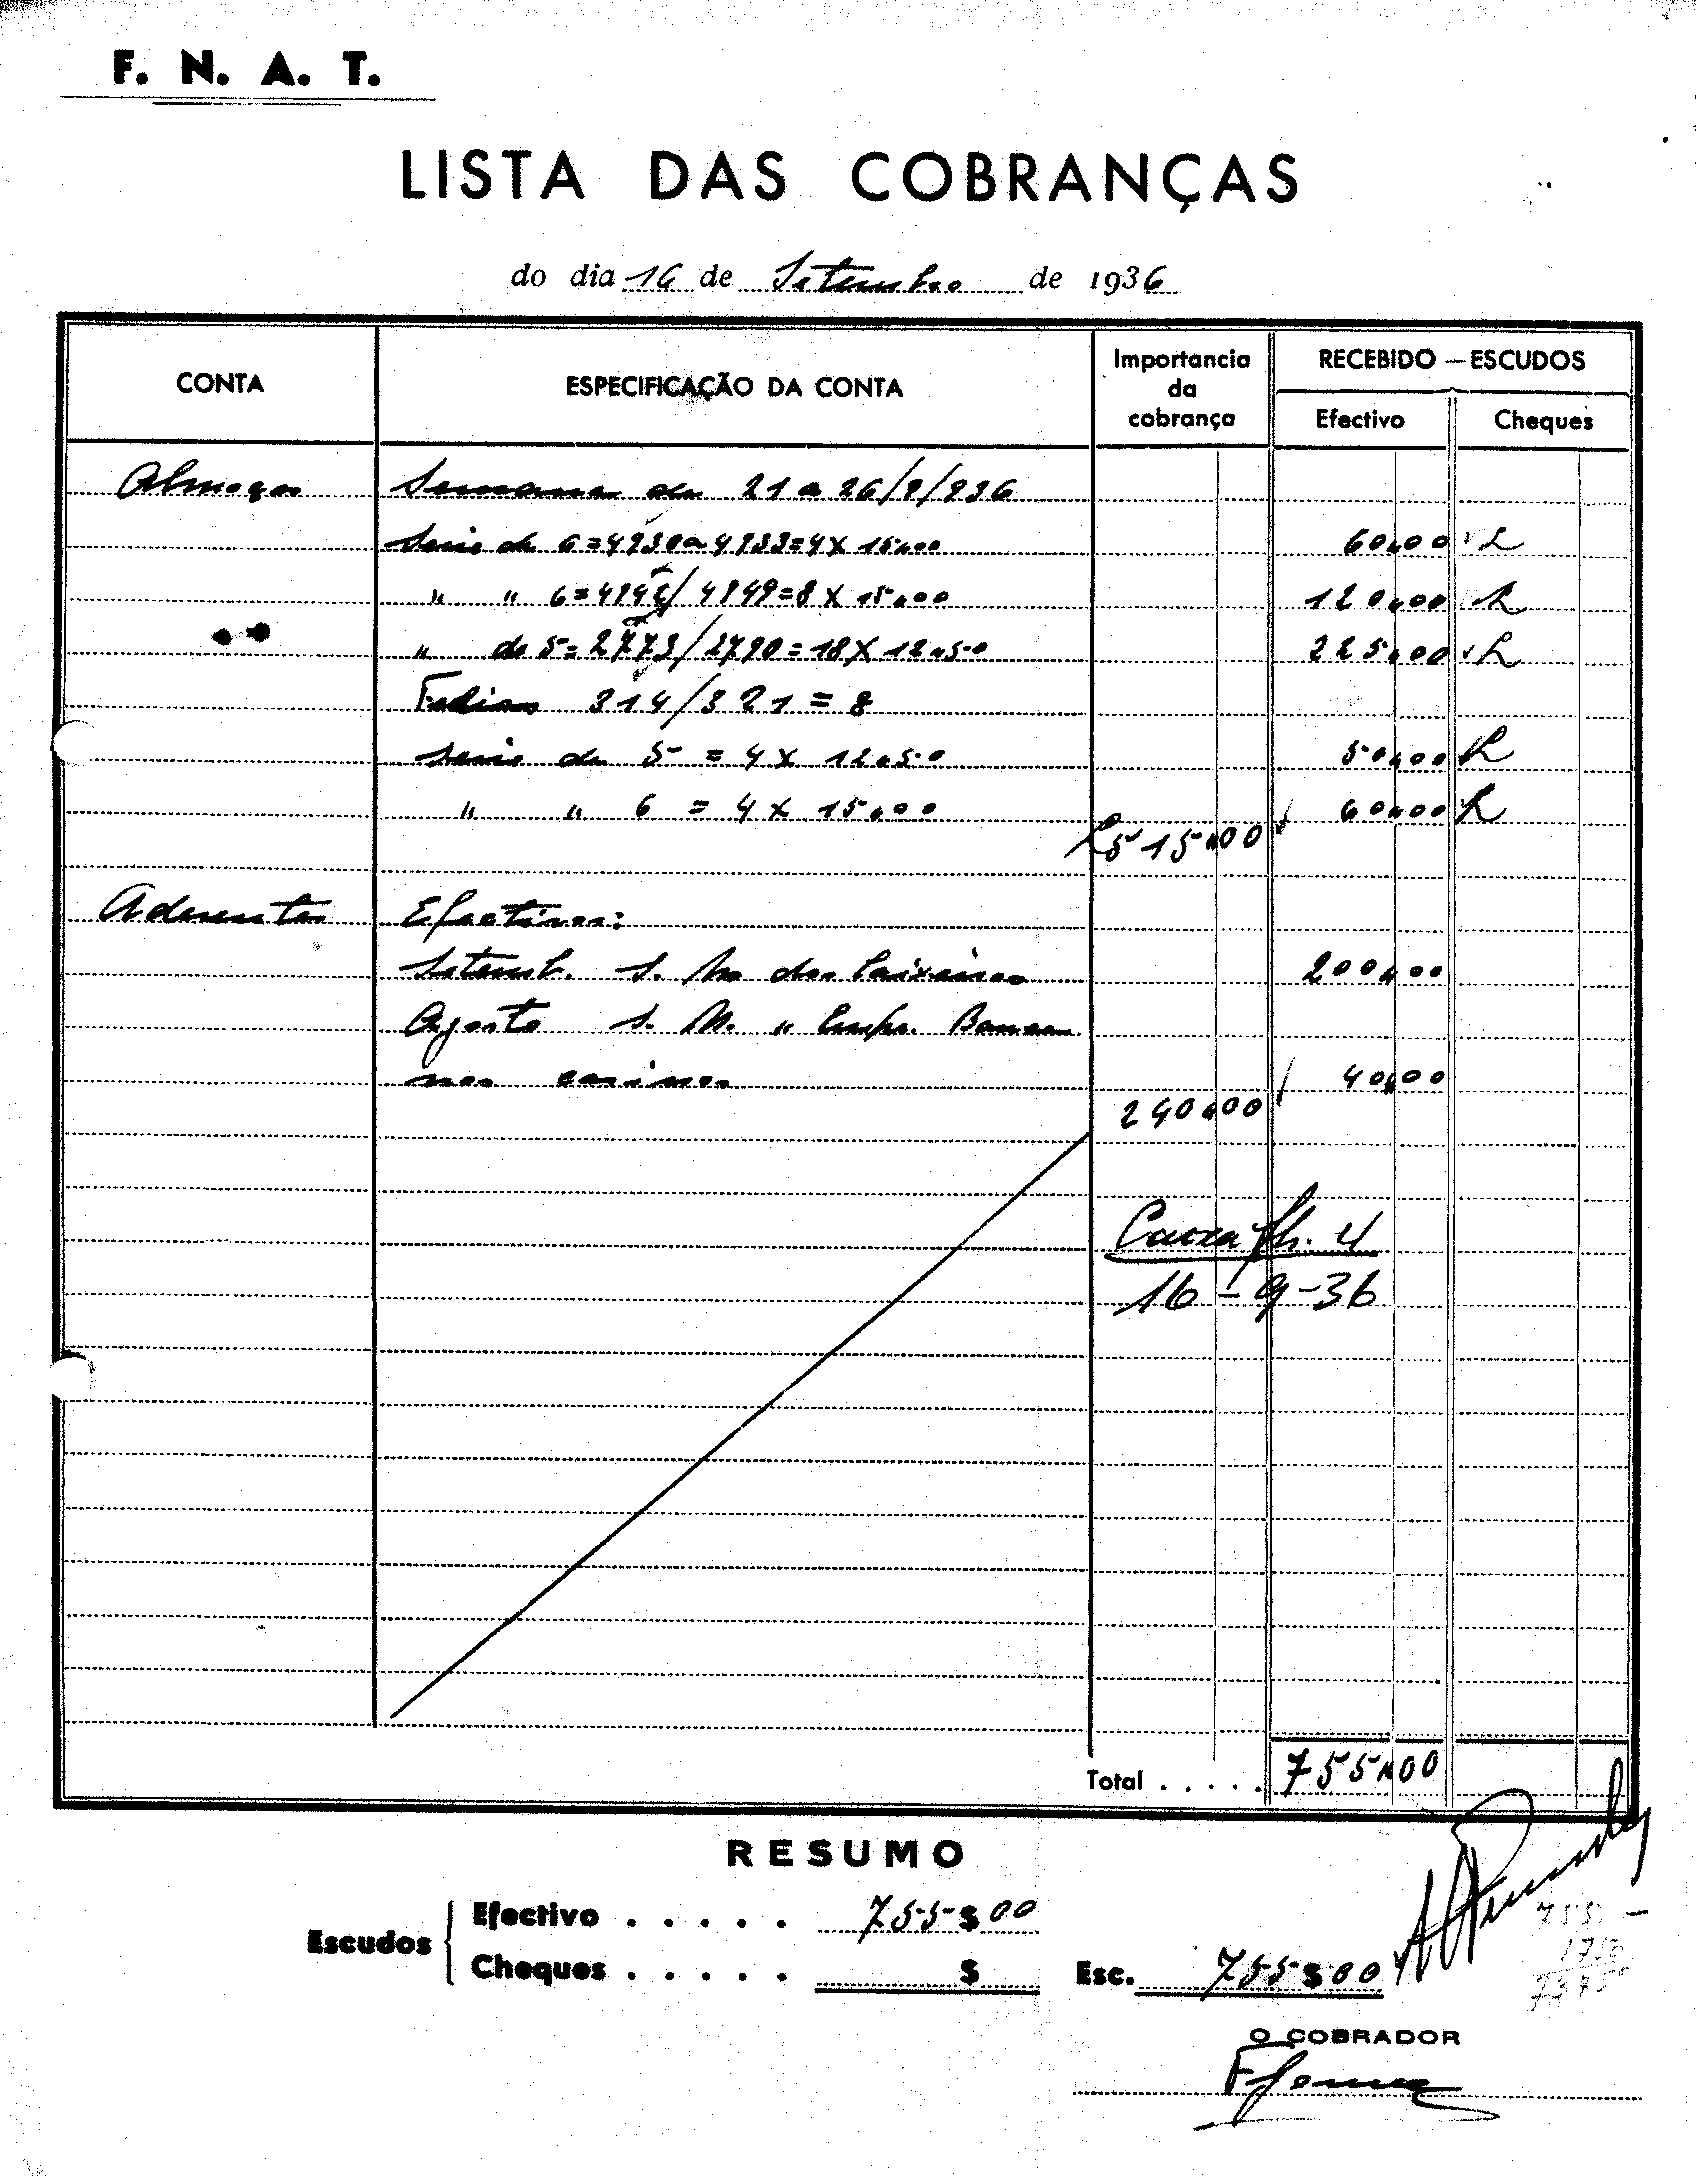 F. N. A. T.
LISTA DAS COBRANÇAS
do dia 16 de Setembro de 1936
CONTA
ESPECIFICAÇÃO DA CONTA
Importancia
da
cobrança
RECEBIDO — ESCUDOS
Efectivo
Cheques
Almoços Semana de 21 a 26/9/936
Serie de 6 = 4930 a 4933 = 4 X 15,00 60,00
" " 6 = 4942/4949 = 8 X 15,00 120,00
" de 5 = 2773/2790 = 18 X 12,50 225,00
314/321 = 8
Serie de 5 = 4 X 12,50 50,00
" " 6 = 4 X 15,00 60,00
515,00
Aderentes Efectivos:
Setemb. S. N. dos Caixeiros 200,00
Agosto S. N. " Empr. Bancar.
nos casinos 40,00
240,00
Caixa fl. 4
16-9-36
Total . . . . . 755,00
RESUMO
Escudos
Efectivo . . . . . 755$00
Cheques . . . . . $
Esc. 755$00
O COBRADOR